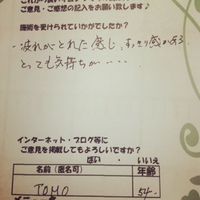 ご意見・ご感想の記入をお願い致します♪
施術を受けられていかがでしたか？
・疲れがとれた感じ、すっきり感がある
とっても気持ちが・・・・
インターネット・ブログ等に
ご意見を掲載してもよろしいですか？
はい ・ いいえ
名前（匿名可） 年齢
TOMO